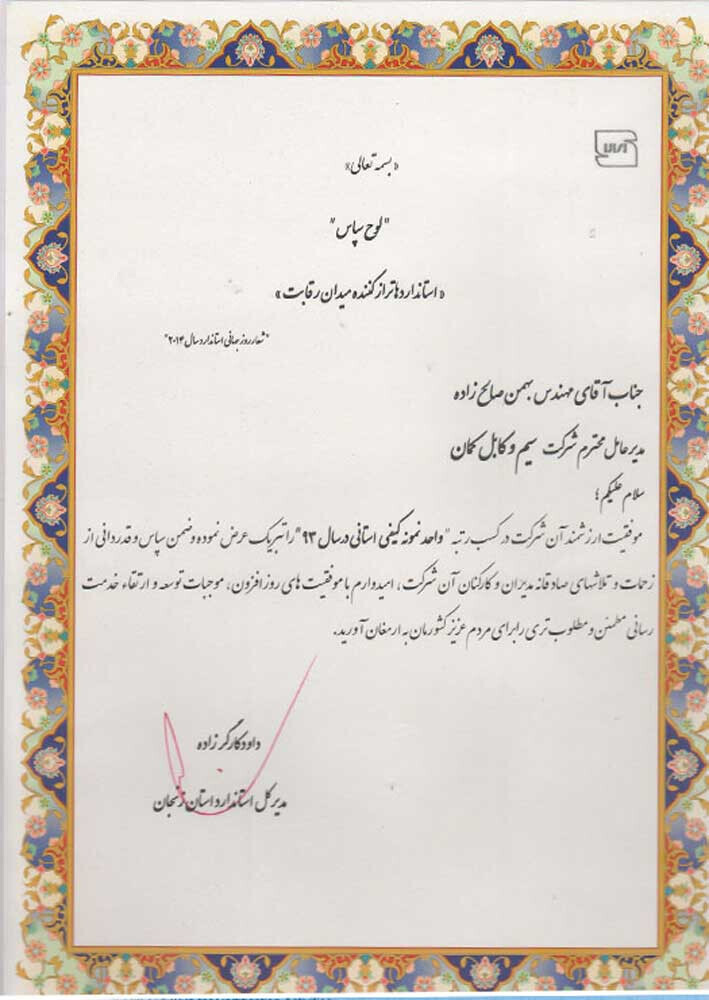 «بسمه تعالی»
"لوح سپاس"
«استانداردها تراز کننده میدان رقابت»
"شعار روز جهانی استاندارد سال ۲۰۱۴"
جناب آقای مهندس بهمن صالح زاده
مدیرعامل محترم شرکت سیم و کابل کمان
سلام علیکم؛
موفقیت ارزشمند آن شرکت در کسب رتبه "واحد نمونه کیفی استانی در سال ۹۳" را تبریک عرض نموده و ضمن سپاس و قدردانی از
زحمات و تلاشهای صادقانه مدیران و کارکنان آن شرکت، امیدوارم با موفقیت های روزافزون، موجبات توسعه و ارتقاء خدمت
رسانی مطمئن و مطلوب تری را برای مردم عزیز کشورمان به ارمغان آورید.
داود کارگر زاده
مدیر کل استاندارد استان زنجان